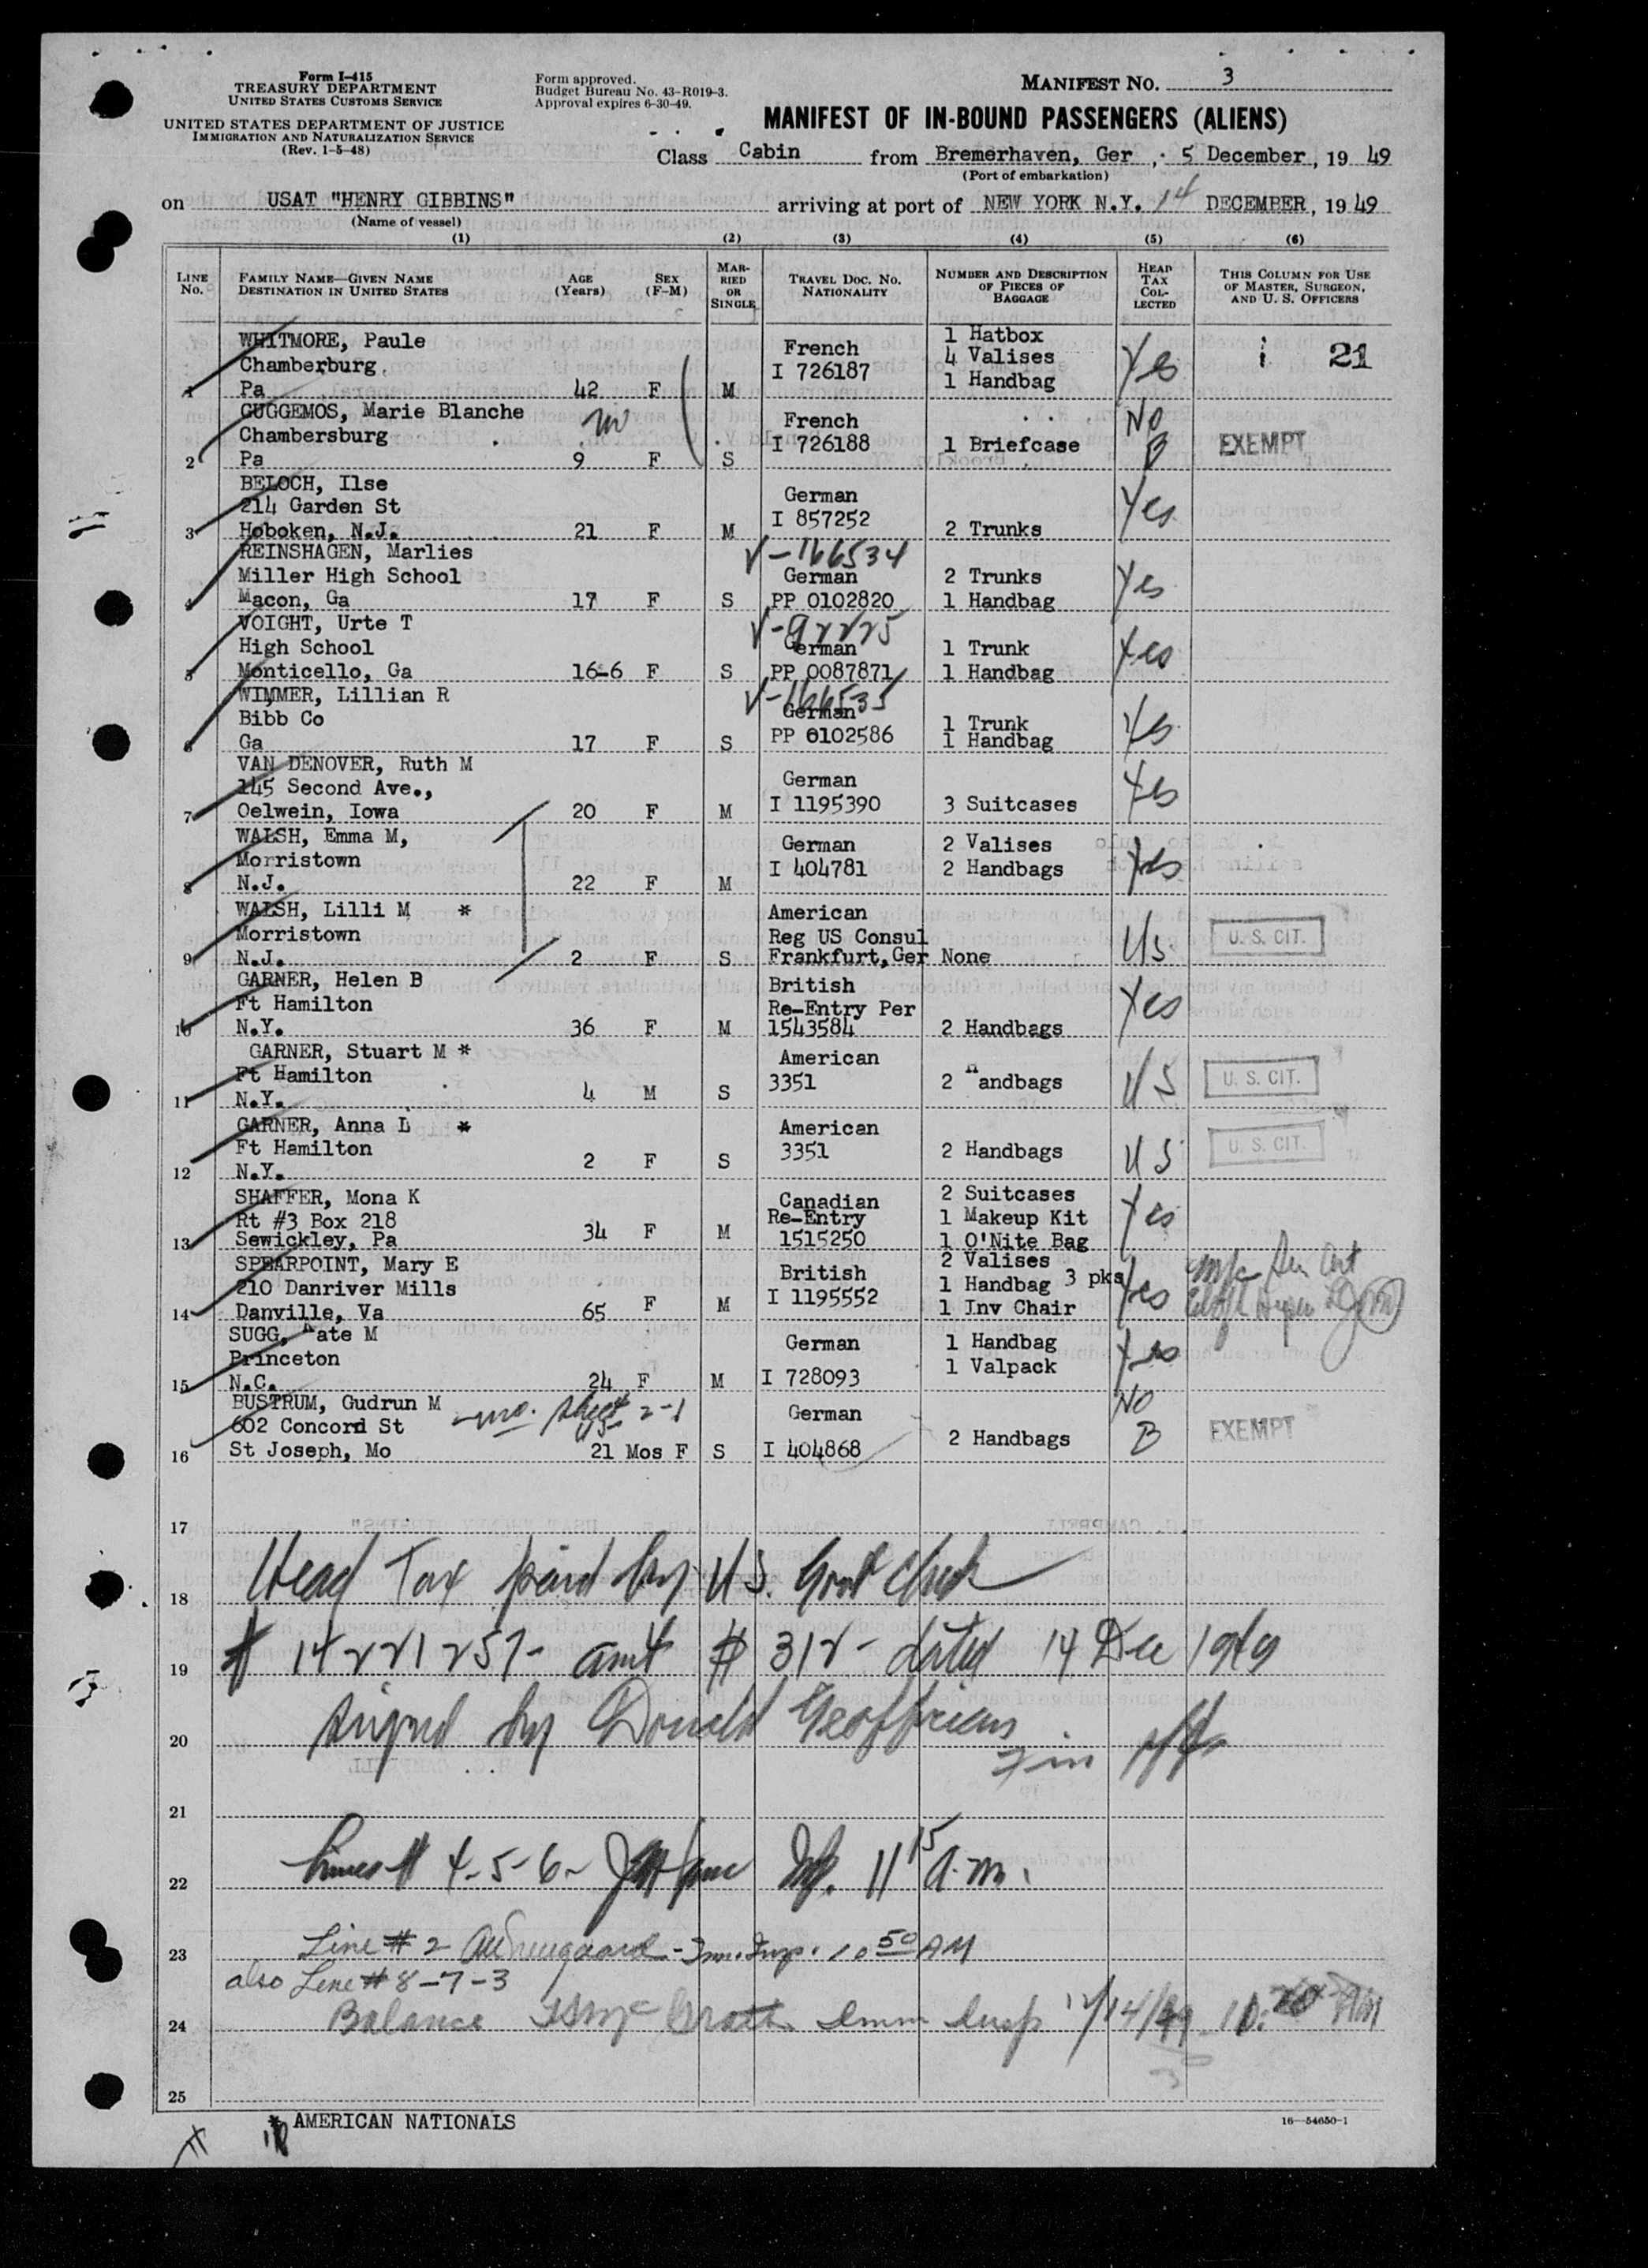 Form I-415
TREASURY DEPARTMENT
UNITED STATES CUSTOMS SERVICE
UNITED STATES DEPARTMENT OF JUSTICE
IMMIGRATION AND NATURALIZATION SERVICE
(Rev. 1-5-48)
Form approved.
Budget Bureau No. 43-R019-3.
Approval expires 6-30-49.
MANIFEST NO. 3
MANIFEST OF IN-BOUND PASSENGERS (ALIENS)
Class Cabin from Bremerhaven, Ger , 5 December , 19 49
(Port of embarkation)
on USAT "HENRY GIBBINS" arriving at port of NEW YORK N.Y. 14 DECEMBER , 19 49
(Name of vessel)
(1) (2) (3) (4) (5) (6)
LINE No. FAMILY NAME—GIVEN NAME DESTINATION IN UNITED STATES AGE (Years) SEX (F-M) MARRIED OR SINGLE TRAVEL DOC. NO. NATIONALITY NUMBER AND DESCRIPTION OF PIECES OF BAGGAGE HEAD TAX COLLECTED THIS COLUMN FOR USE OF MASTER, SURGEON, AND U. S. OFFICERS
WHITMORE, Paule French 1 Hatbox
Chamberburg I 726187 4 Valises Yes i 21
1 Pa 42 F M 1 Handbag
GUGGEMOS, Marie Blanche French No
Chambersburg I 726188 1 Briefcase B EXEMPT
2 Pa 9 F S
BELOCH, Ilse German Yes
214 Garden St I 857252
3 Hoboken, N.J. 21 F M 2 Trunks
REINSHAGEN, Marlies V-166534
Miller High School German 2 Trunks Yes
4 Macon, Ga 17 F S PP 0102820 1 Handbag
VOIGHT, Urte T V-92225
High School German 1 Trunk Yes
5 Monticello, Ga 16-6 F S PP 0087871 1 Handbag
WIMMER, Lillian R V-166535
Bibb Co German 1 Trunk Yes
6 Ga 17 F S PP 0102586 1 Handbag
VAN DENOVER, Ruth M German Yes
145 Second Ave.,
7 Oelwein, Iowa 20 F M I 1195390 3 Suitcases
WALSH, Emma M, German 2 Valises
Morristown I 404781 2 Handbags Yes
8 N.J. 22 F M
WALSH, Lilli M * American
Morristown Reg US Consul US U. S. CIT.
9 N.J. 2 F S Frankfurt,Ger None
GARNER, Helen B British Yes
Ft Hamilton Re-Entry Per
10 N.Y. 36 F M 1543584 2 Handbags
GARNER, Stuart M * American
Ft Hamilton 3351 2 Handbags US U. S. CIT.
11 N.Y. 4 M S
GARNER, Anna L * American
Ft Hamilton 3351 2 Handbags US U. S. CIT.
12 N.Y. 2 F S
SHAFFER, Mona K Canadian 2 Suitcases
Rt #3 Box 218 Re-Entry 1 Makeup Kit Yes
13 Sewickley, Pa 34 F M 1515250 1 O'Nite Bag
SPEARPOINT, Mary E British 2 Valises
210 Danriver Mills I 1195552 1 Handbag 3 pks Yes
14 Danville, Va 65 F M 1 Inv Chair
SUGG, Kate M German 1 Handbag Yes
Princeton 1 Valpack
15 N.C. 24 F M I 728093
BUSTRUM, Gudrun M German No
602 Concord St 2 Handbags B EXEMPT
16 St Joseph, Mo 21 Mos F S I 404868
17
18 Head Tax paid by U.S. Govt Check
19 # 14221257- amt $ 312- dated 14 Dec 1949
20 signed by Donald
21
22 Lines # 4-5-6- Insp. 11 15 A.M.
23 Line # 2 Imm. Insp. 10 50 AM
also Line # 8-7-3
24 Balance Imm Insp 12/14/49
25
* AMERICAN NATIONALS
16—54650-1